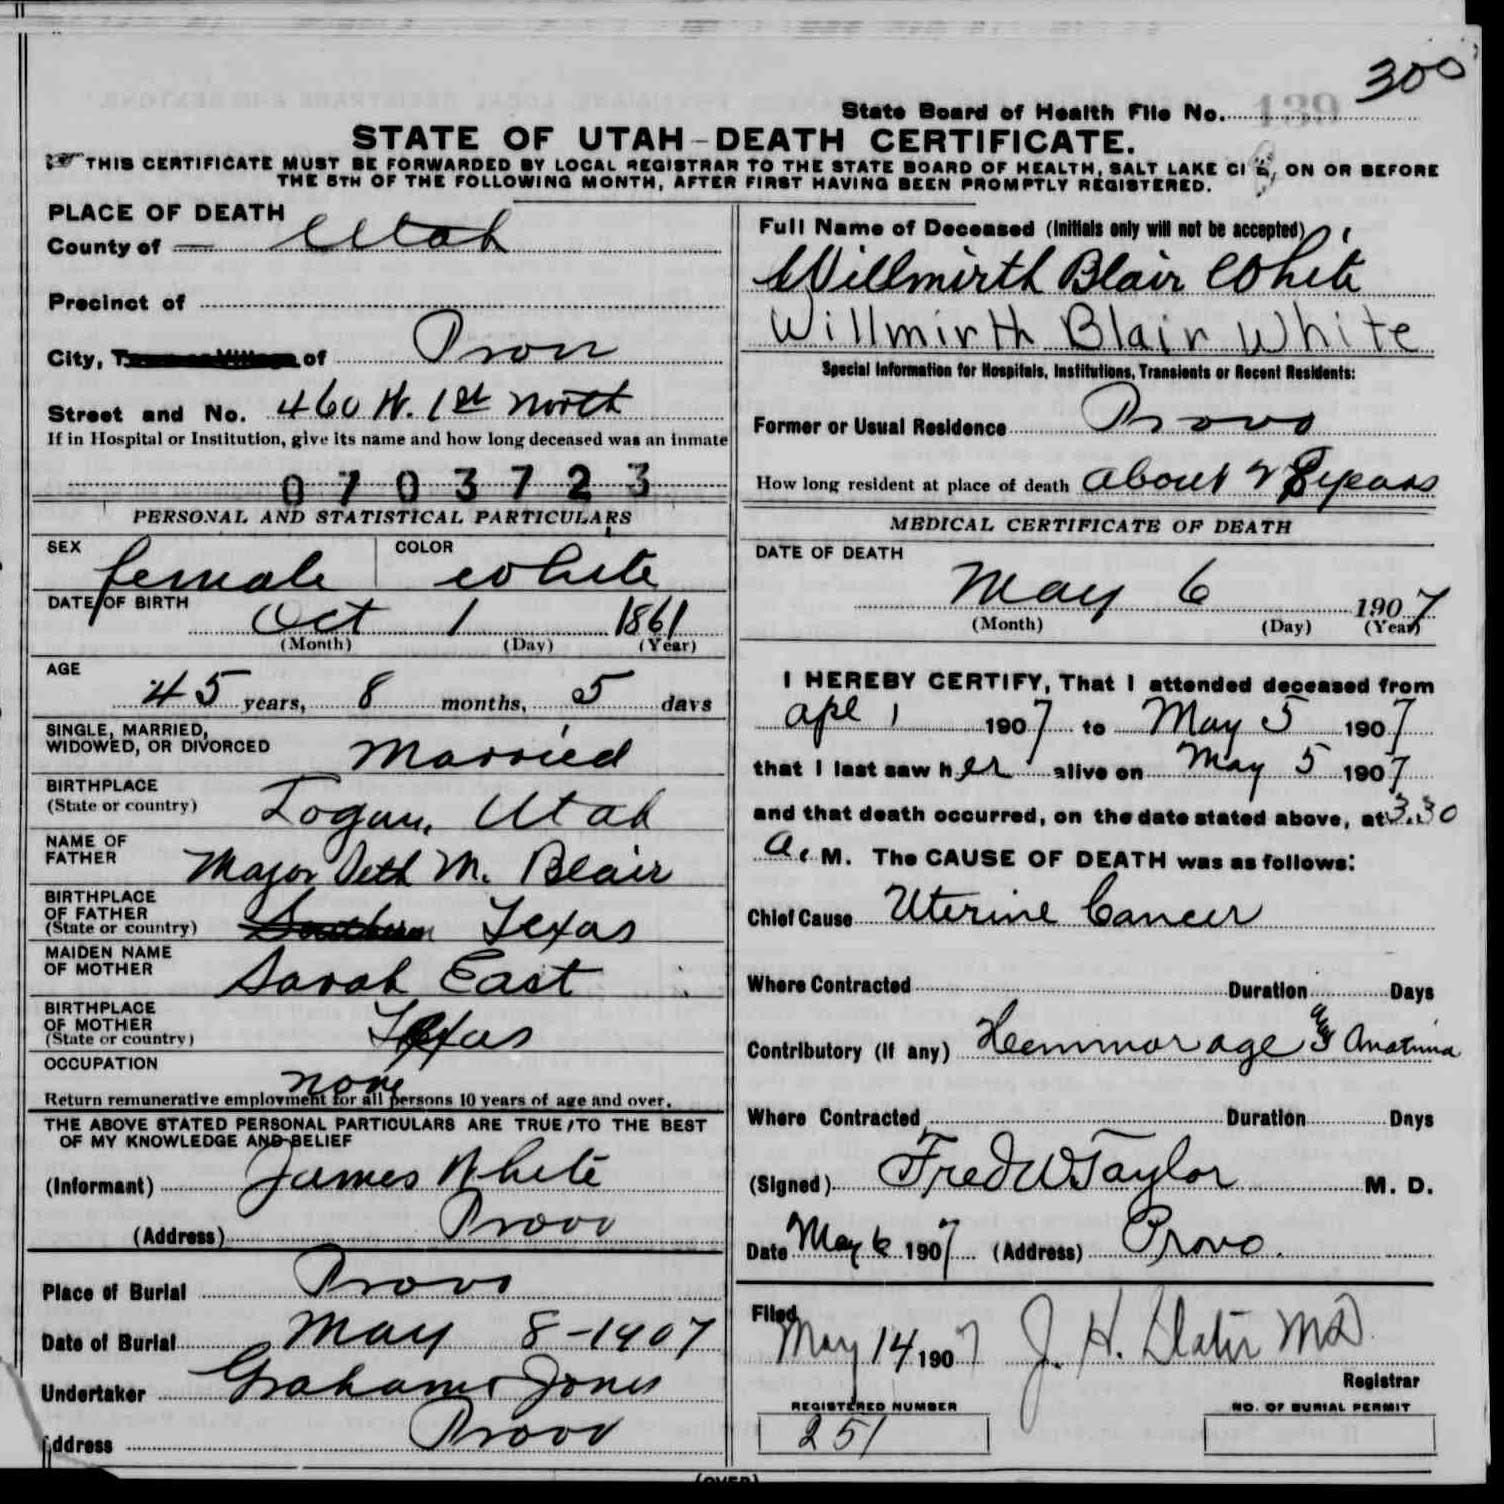 300
State Board of Health File No. 139
STATE OF UTAH-DEATH CERTIFICATE.
THIS CERTIFICATE MUST BE FORWARDED BY LOCAL REGISTRAR TO THE STATE BOARD OF HEALTH, SALT LAKE CITY, ON OR BEFORE
THE 5TH OF THE FOLLOWING MONTH, AFTER FIRST HAVING BEEN PROMPTLY REGISTERED.
PLACE OF DEATH
County of Utah
Precinct of
City, of Provo
Street and No. 460 W. 1st North
If in Hospital or Institution, give its name and how long deceased was an inmate
0703723
PERSONAL AND STATISTICAL PARTICULARS
SEX female COLOR white
DATE OF BIRTH Oct 1 1861
(Month) (Day) (Year)
AGE
45 years, 8 months, 5 days
SINGLE, MARRIED,
WIDOWED, OR DIVORCED Married
BIRTHPLACE
(State or country) Logan, Utah
NAME OF
FATHER Major Seth M. Blair
BIRTHPLACE
OF FATHER
(State or country) Southern Texas
MAIDEN NAME
OF MOTHER Sarah East
BIRTHPLACE
OF MOTHER
(State or country) Texas
OCCUPATION
none
Return remunerative employment for all persons 10 years of age and over.
THE ABOVE STATED PERSONAL PARTICULARS ARE TRUE TO THE BEST
OF MY KNOWLEDGE AND BELIEF
(Informant) James White
(Address) Provo
Place of Burial Provo
Date of Burial May 8-1907
Undertaker Graham Jones
Address Provo
Full Name of Deceased (Initials only will not be accepted)
Willmirth Blair White
Willmirth Blair White
Special Information for Hospitals, Institutions, Transients or Recent Residents:
Former or Usual Residence Provo
How long resident at place of death about years
MEDICAL CERTIFICATE OF DEATH
DATE OF DEATH
May 6 1907
(Month) (Day) (Year)
I HEREBY CERTIFY, That I attended deceased from
Apl 1 1907 to May 5 1907
that I last saw her alive on May 5 1907
and that death occurred, on the date stated above, at 3.30
A. M. The CAUSE OF DEATH was as follows:
Chief Cause Uterine Cancer
Where Contracted Duration Days
Contributory (if any) Hemmorage
Where Contracted Duration Days
(Signed) Fred W Taylor M. D.
Date May 6 1907 (Address) Provo.
Filed
May 14 1907 J. H. MD.
Registrar
REGISTERED NUMBER
251
NO. OF BURIAL PERMIT
(OVER)